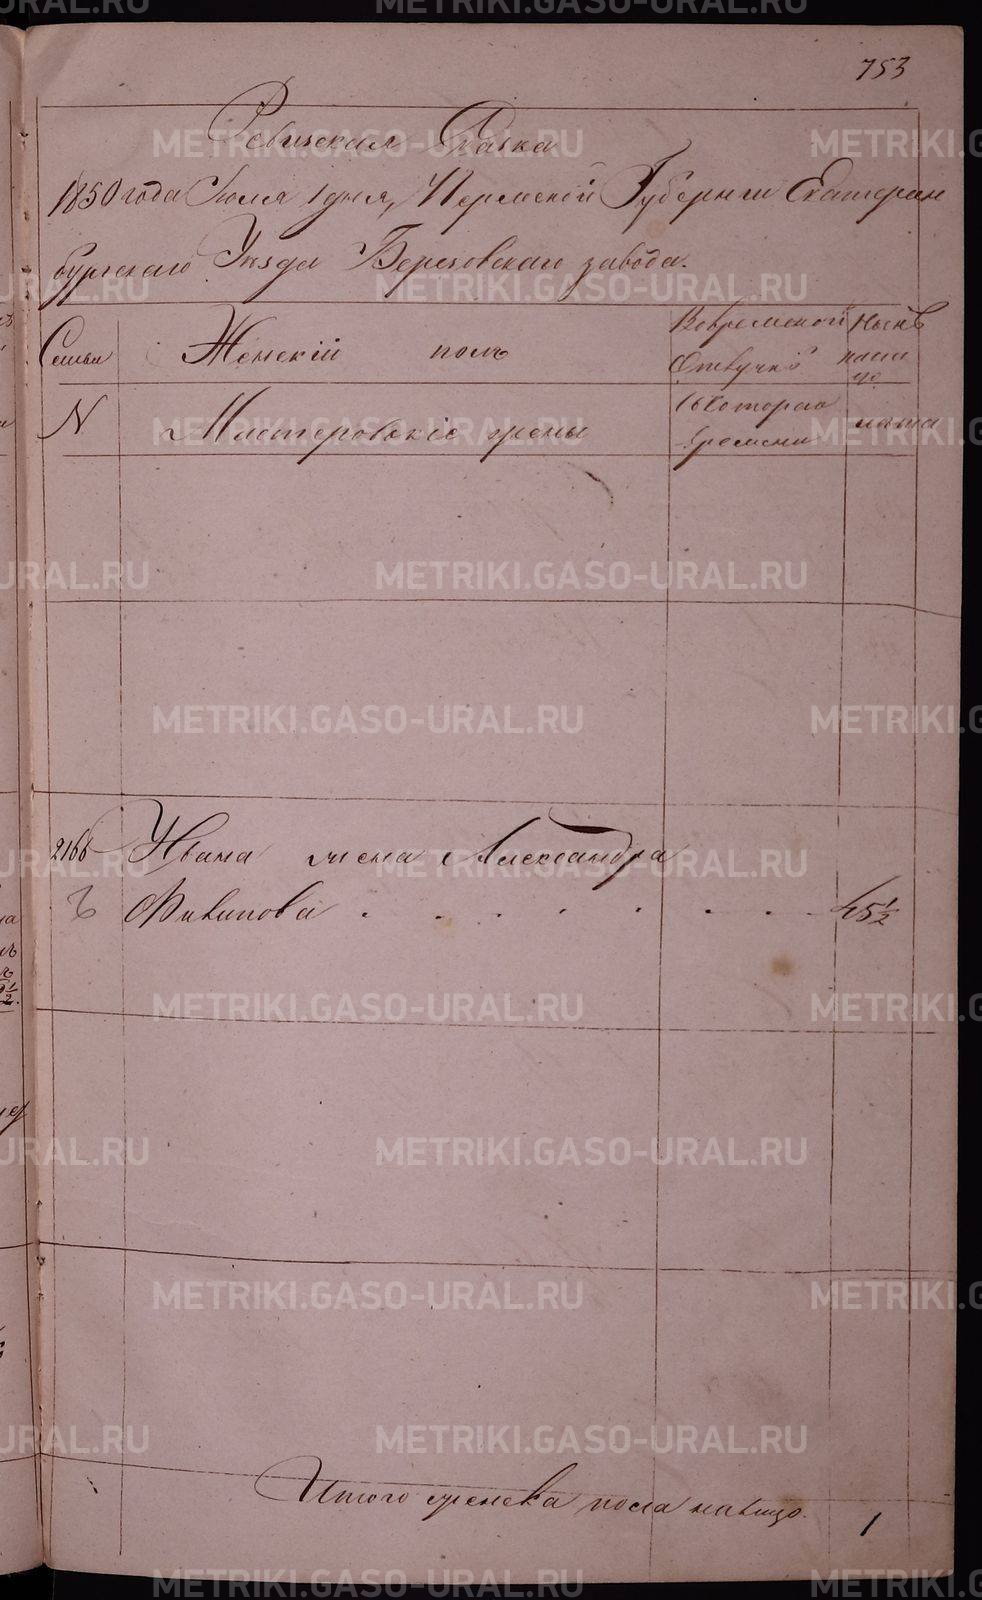 753
Ревизская Сказка
1850 года Июля 1 дня, Пермской Губернии Екатерин
бургскаго Уезда Березовскаго завода.
Семьи
Женскій полъ
Вовременной
Отлучке
Ныне
налицо
N
Мастеровскіе жены
Съ котораго
времени
лета
2166
Ивана жена Александра
Филипова . . . . . . . 45 1/2
Итого женска пола налицо. 1
METRIKI.GASO-URAL.RU